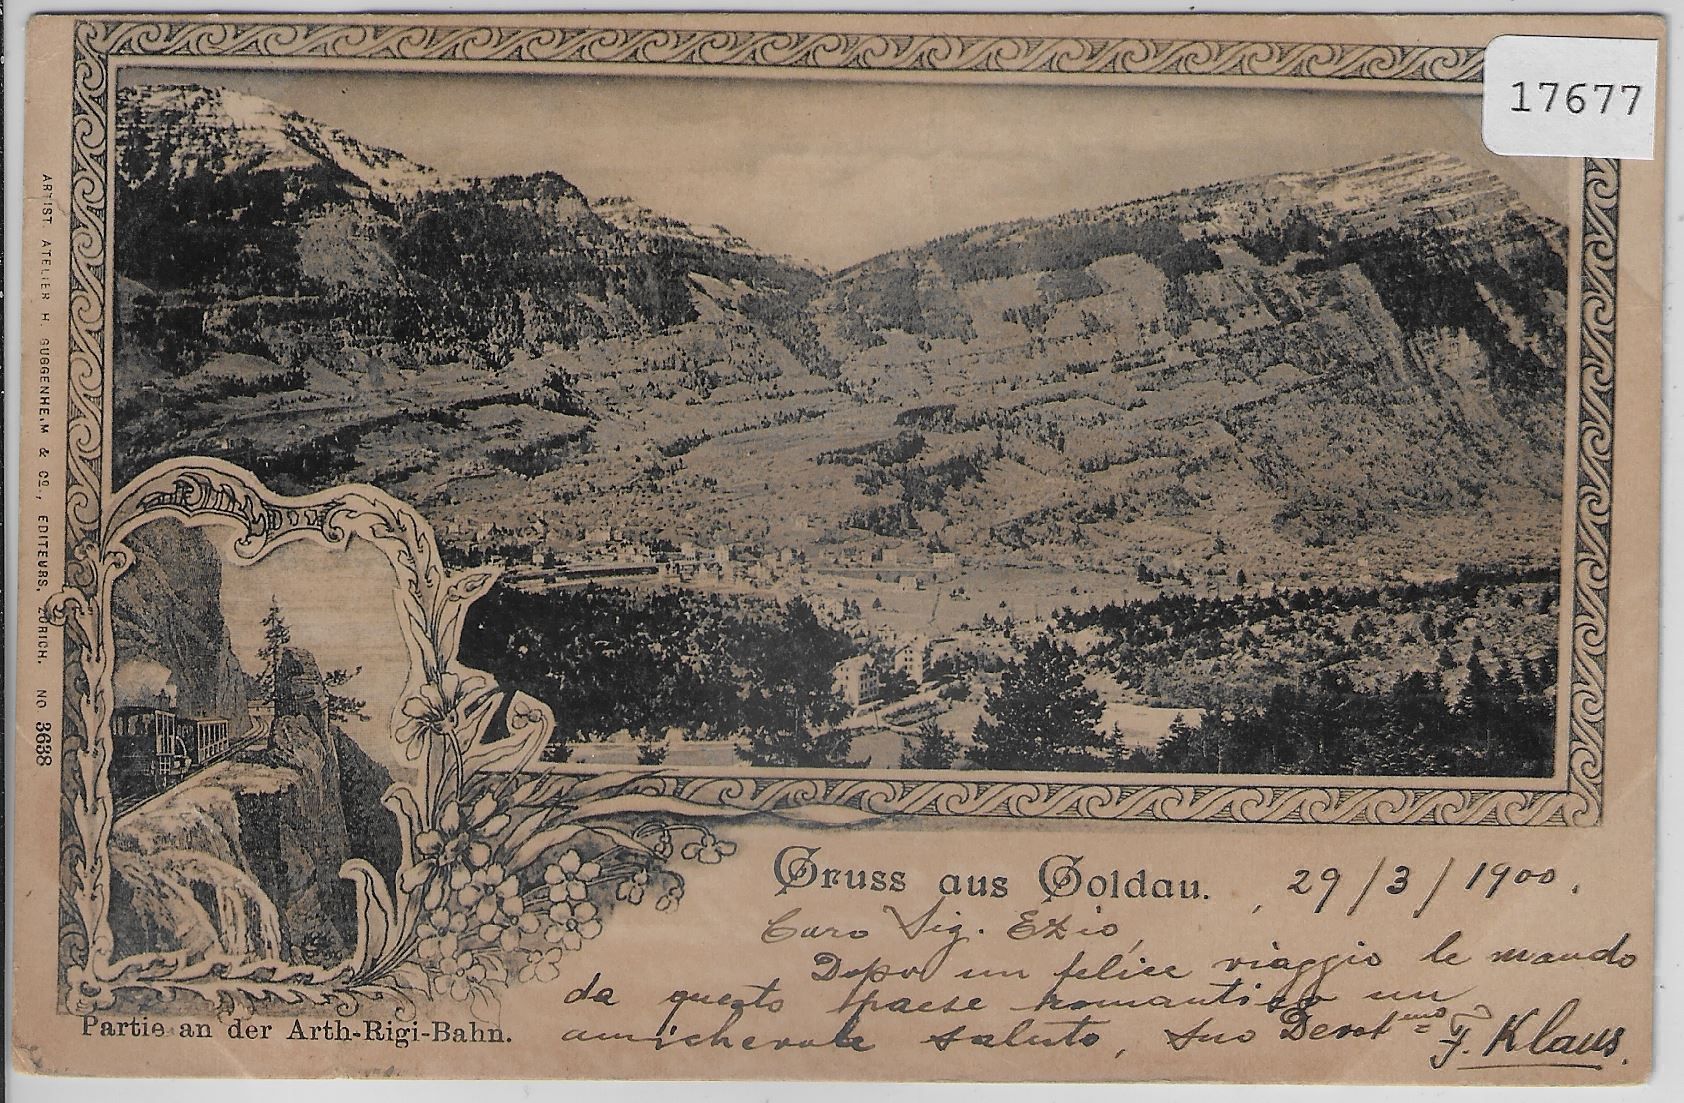 17677
ARTIST. ATELIER H. GUGGENHEIM & Co., EDITEURS, ZÜRICH. No 3638
Gruss aus Goldau. , 29/3/1900.
Caro Sig. Ezio,
Dopo un felice viaggio le mando
da questo paese romantico un
amichevole saluto, suo Devotmo F. Klaus.
Partie an der Arth-Rigi-Bahn.